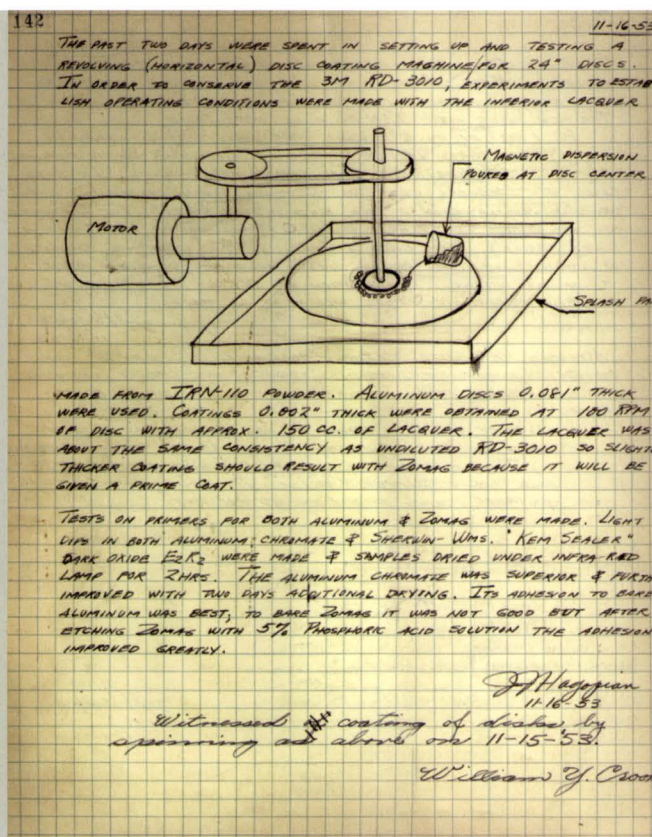 142
11-16-53
THE PAST TWO DAYS WERE SPENT IN SETTING UP AND TESTING A
REVOLVING (HORIZONTAL) DISC COATING MACHINE FOR 24" DISCS.
IN ORDER TO CONSERVE THE 3M RD-3010, EXPERIMENTS TO ESTAB
LISH OPERATING CONDITIONS WERE MADE WITH THE INFERIOR LACQUER
MAGNETIC DISPERSION
POURED AT DISC CENTER
MOTOR
SPLASH PA
MADE FROM IRN-110 POWDER. ALUMINUM DISCS 0.081" THICK
WERE USED. COATINGS 0.002" THICK WERE OBTAINED AT 100 RPM
OF DISC WITH APPROX. 150 CC. OF LACQUER. THE LACQUER WAS
ABOUT THE SAME CONSISTENCY AS UNDILUTED RD-3010 SO SLIGHT
THICKER COATING SHOULD RESULT WITH ZOMAG BECAUSE IT WILL BE
GIVEN A PRIME COAT.
TESTS ON PRIMERS FOR BOTH ALUMINUM & ZOMAG WERE MADE. LIGHT
DIPS IN BOTH ALUMINUM CHROMATE & SHERWIN-WMS. "KEM SEALER"
DARK OXIDE E2R2 WERE MADE & SAMPLES DRIED UNDER INFRA-RED
LAMP FOR 2 HRS. THE ALUMINUM CHROMATE WAS SUPERIOR & FURTH
IMPROVED WITH TWO DAYS ADDITIONAL DRYING. ITS ADHESION TO BARE
ALUMINUM WAS BEST; TO BARE ZOMAG IT WAS NOT GOOD BUT AFTER
ETCHING ZOMAG WITH 5% PHOSPHORIC ACID SOLUTION THE ADHESION
IMPROVED GREATLY.
JJ Hagopian
11-16-53
Witnessed coating of disks by
spinning as above on 11-15-'53.
William Y. Croo